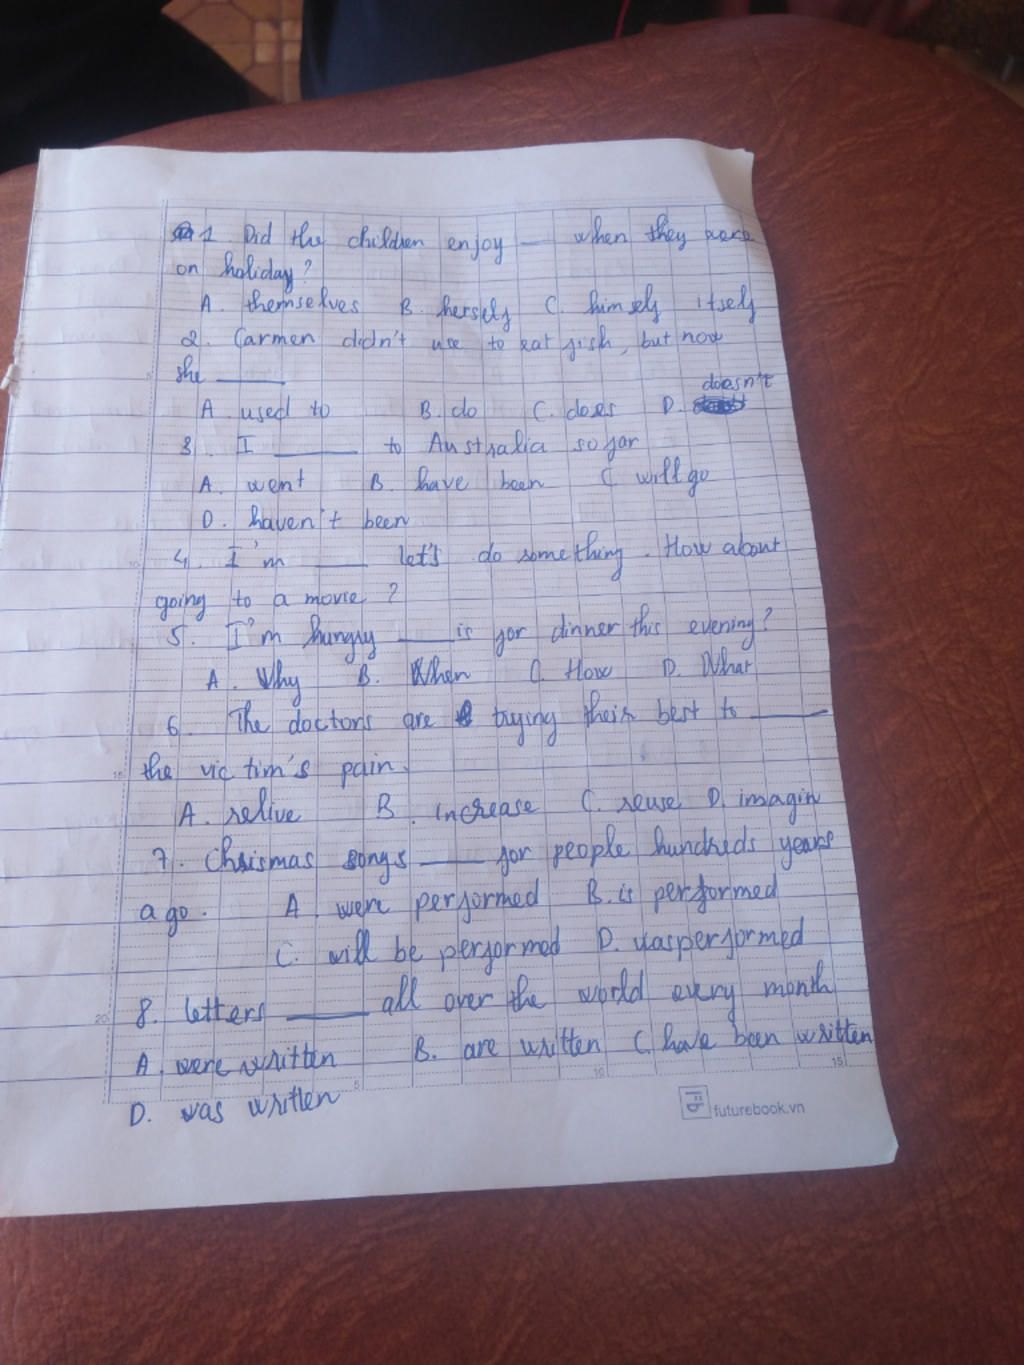 1 Did the children enjoy ___ when they were
on holiday?
A. themselves B. hersely C. himsely itsely
2. Carmen didn't use to eat fish, but now
she ___
doesn't
A. used to B. do C. does D.
3. I ___ to Australia so far
A. went B. have been C will go
D. haven't been
4. I'm ___ let's do something. How about
going to a movie?
5. I'm hungry ___ is for dinner this evening?
A. Why B. When C. How D. What
6. The doctors are trying their best to ___
the victim's pain.
A. relive B. increase C. reuse D. imagin
7. Chrismas songs ___ for people hundreds years
ago. A. were performed B. is performed
C. will be performed D. was performed
8. letters ___ all over the world every month
A. were written B. are written C. have been written
D. was written
5 10 15
5
10
15
20
futurebook.vn